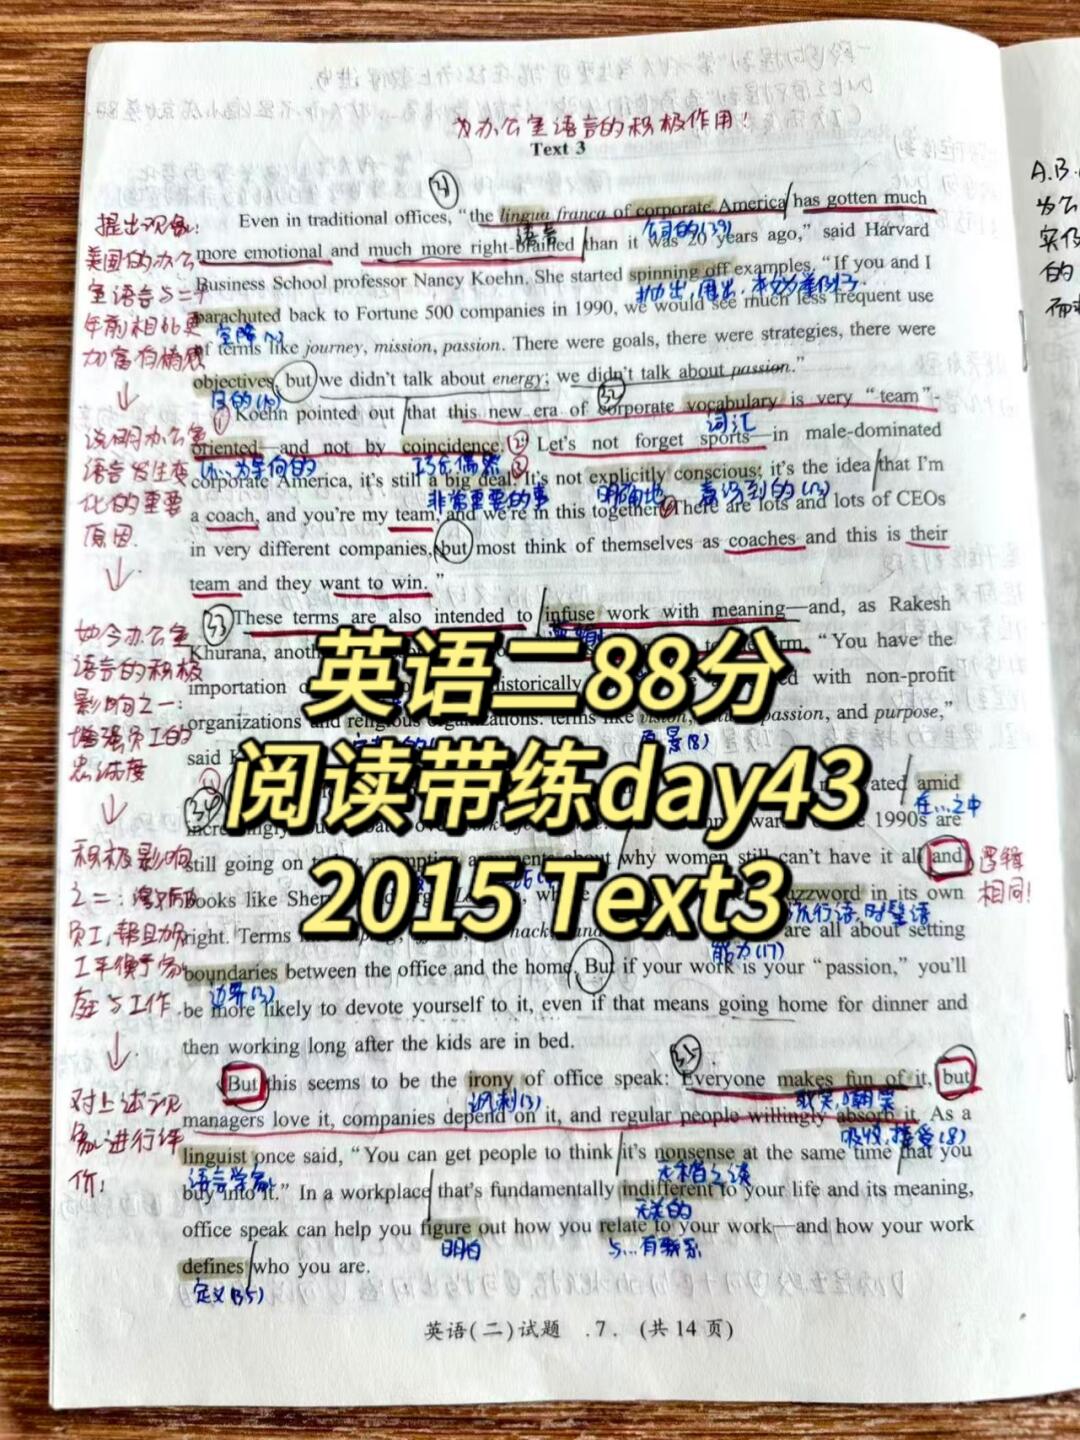 为办公室语言的积极作用！
Text 3
31
Even in traditional offices, “the lingua franca of corporate America has gotten much
语言
公司的(39)
more emotional and much more right-brained than it was 20 years ago,” said Harvard
Business School professor Nancy Koehn. She started spinning off examples. “If you and I
抛出,甩出,
parachuted back to Fortune 500 companies in 1990, we would see much less frequent use
空降
of terms like journey, mission, passion. There were goals, there were strategies, there were
objectives, but we didn’t talk about energy; we didn’t talk about passion.”
目的
32
① Koehn pointed out that this new era of corporate vocabulary is very “team”-
词汇
oriented—and not by coincidence. ② Let’s not forget sports—in male-dominated
以…为导向的
巧合,偶然
corporate America, it’s still a big deal. ③ It’s not explicitly conscious; it’s the idea that I’m
非常重要的事
明确地
意识到的
a coach, and you’re my team, and we’re in this together. There are lots and lots of CEOs
in very different companies, but most think of themselves as coaches and this is their
team and they want to win. ”
33
These terms are also intended to infuse work with meaning—and, as Rakesh
Khurana, anoth
firm. “You have the
importation o
istorically
d with non-profit
organizations and religious organizations: terms like vision,
passion, and purpose,”
愿景(8)
said K
34
ated amid
在…之中
increasingly
1990s are
still going on
about why women still can’t have it all and
逻辑
相同！
books like Sher
buzzword in its own
流行语,时髦语
right. Terms
hack,
are all about setting
能力(17)
boundaries between the office and the home. But if your work is your “passion,” you’ll
边界(3)
be more likely to devote yourself to it, even if that means going home for dinner and
then working long after the kids are in bed.
35
But this seems to be the irony of office speak: Everyone makes fun of it, but
讽刺(3)
取笑,嘲笑
managers love it, companies depend on it, and regular people willingly absorb it. As a
吸收,接受(8)
linguist once said, “You can get people to think it’s nonsense at the same time that you
语言学家
无稽之谈
buy into it.” In a workplace that’s fundamentally indifferent to your life and its meaning,
无关的
office speak can help you figure out how you relate to your work—and how your work
明白
与…有联系
defines who you are.
定义(35)
英语(二)试题 . 7 . (共 14 页)
提出现象:
美国的办公
室语言与二十
年前相比更
加富有情感
↓
说明办公室
语言发生变
化的重要
原因.
↓
如今办公室
语言的积极
影响之一:
增强员工的
忠诚度
↓
积极影响
之二:
员工,帮助员
工平衡了家
庭与工作.
↓
对上述现
象进行评
价!
A.B.
为公
的
英语二88分
阅读带练day43
2015 Text3